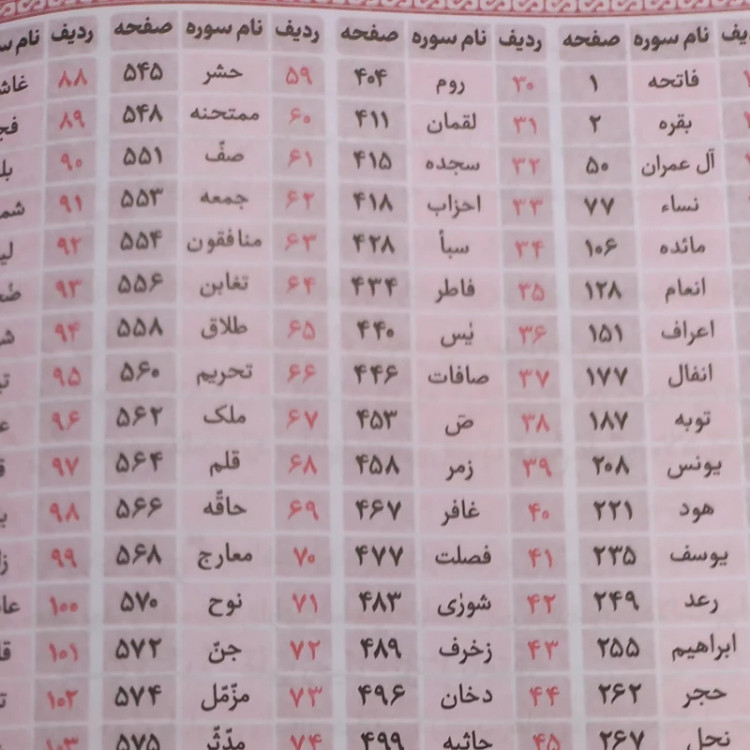 نام سوره صفحه ردیف نام سوره صفحه ردیف نام سوره صفحه ردیف
فاتحه ۱ ۳۰ روم ۴۰۴ ۵۹ حشر ۵۴۵ ۸۸
بقره ۲ ۳۱ لقمان ۴۱۱ ۶۰ ممتحنه ۵۴۸ ۸۹
آل عمران ۵۰ ۳۲ سجده ۴۱۵ ۶۱ صفّ ۵۵۱ ۹۰
نساء ۷۷ ۳۳ احزاب ۴۱۸ ۶۲ جمعه ۵۵۳ ۹۱
مائده ۱۰۶ ۳۴ سبأ ۴۲۸ ۶۳ منافقون ۵۵۴ ۹۲
انعام ۱۲۸ ۳۵ فاطر ۴۳۴ ۶۴ تغابن ۵۵۶ ۹۳
اعراف ۱۵۱ ۳۶ یٰس ۴۴۰ ۶۵ طلاق ۵۵۸ ۹۴
انفال ۱۷۷ ۳۷ صافات ۴۴۶ ۶۶ تحریم ۵۶۰ ۹۵
توبه ۱۸۷ ۳۸ صٓ ۴۵۳ ۶۷ ملک ۵۶۲ ۹۶
یونس ۲۰۸ ۳۹ زمر ۴۵۸ ۶۸ قلم ۵۶۴ ۹۷
هود ۲۲۱ ۴۰ غافر ۴۶۷ ۶۹ حاقّه ۵۶۶ ۹۸
یوسف ۲۳۵ ۴۱ فصلت ۴۷۷ ۷۰ معارج ۵۶۸ ۹۹
رعد ۲۴۹ ۴۲ شوریٰ ۴۸۳ ۷۱ نوح ۵۷۰ ۱۰۰
ابراهیم ۲۵۵ ۴۳ زخرف ۴۸۹ ۷۲ جنّ ۵۷۲ ۱۰۱
حجر ۲۶۲ ۴۴ دخان ۴۹۶ ۷۳ مزّمّل ۵۷۴ ۱۰۲
نحل ۲۶۷ ۴۵ جاثیه ۴۹۹ ۷۴ مدّثّر ۵۷۵ ۱۰۳